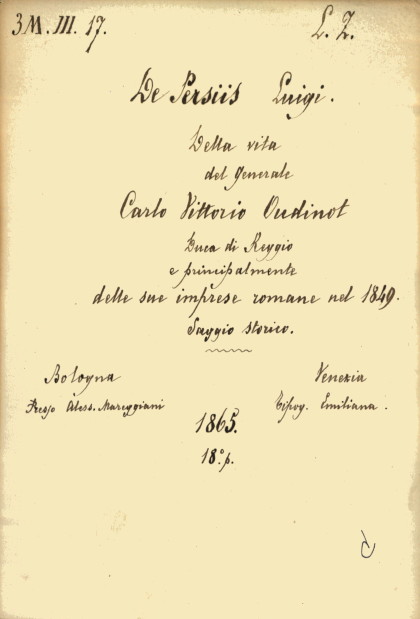 3M. III. 17.
L. Z.
De Persiis Luigi.
Della vita
del generale
Carlo Vittorio Oudinot
Duca di Reggio
e principalmente
delle sue imprese romane nel 1849.
Saggio storico.
Bologna
Venezia
Presso Aless. Mareggiani
Tipog. Emiliana.
1865.
18.° p.